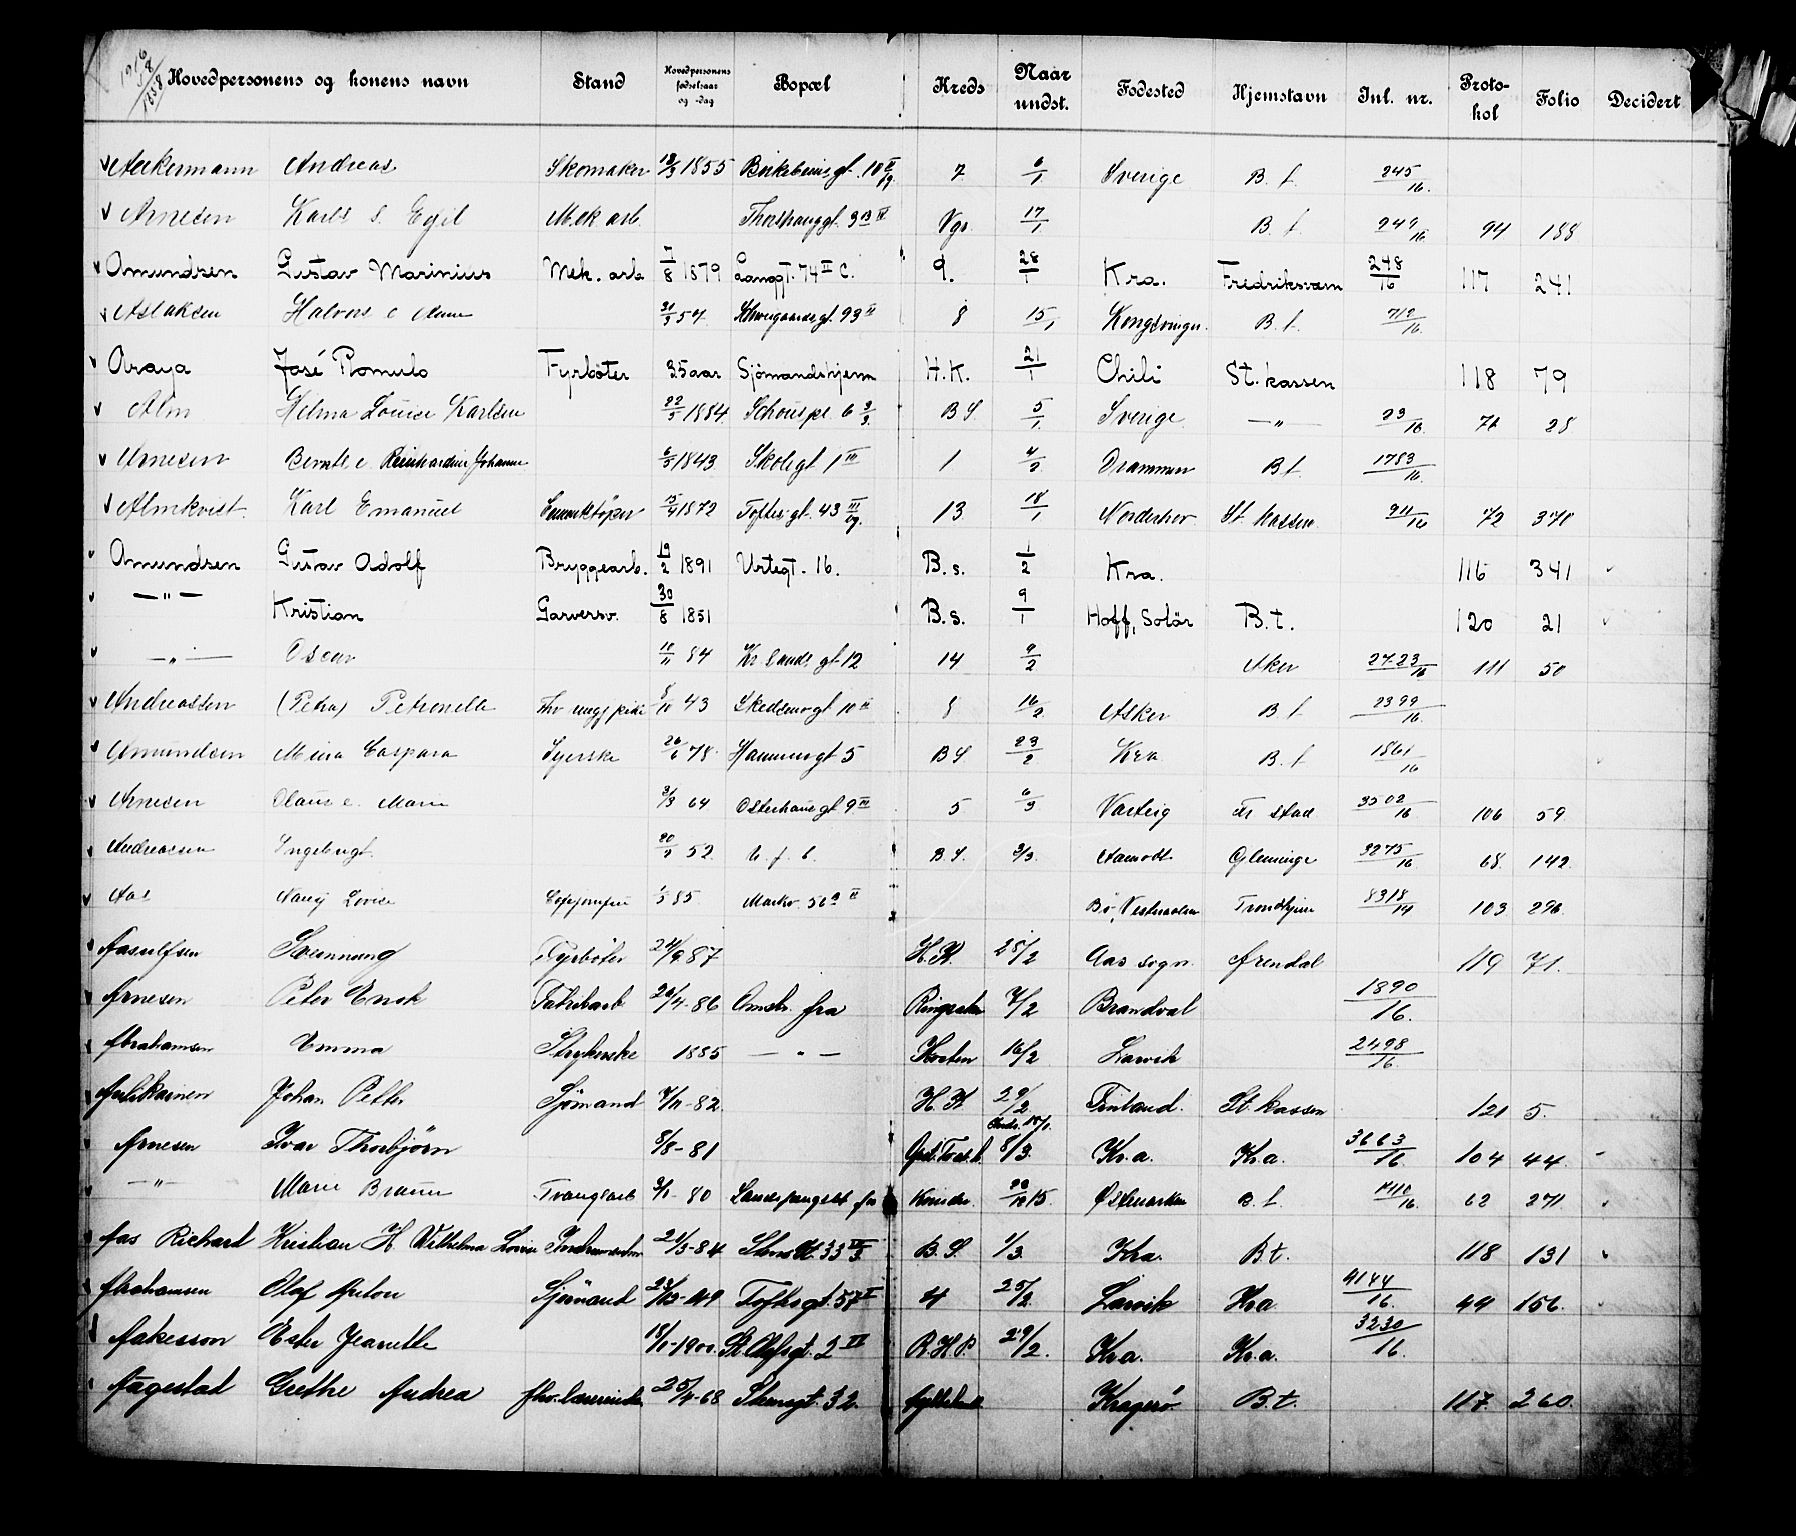 1916
Hovedpersonens og konens navn Stand Hovedpersonens fødselsaar og -dag Bopæl Kreds Naar undst. Fødested Hjemstavn Inl. nr. Proto-kol Folio Decidert
Ackermann Andreas Skomaker 1855 Birkebeinsgt. 10 II 7 6/1 Sverige B. t. 245/16.
Arnesen Karls s. Egil Mek arb. Thorshauggt. 3 B Vgs 17/1 B. t. 94 188
Amundsen Gustav Marinius Mek. arb 1/8 1879 Langgt. 74 II C. 9. 28/1 Kra. Fredriksværn 248/16 117 241
Aslaksen Halvors e 54 Schweigaardsgt. 93 II 8 15/1 Kongsvinger B. t. 712/16.
Araya José Romulo Fyrböter 35 aar Sjömandshjem H.K. 21/1 Chili St. kassen 118 79
Alm Helma Louise Karlsen 22/5 1884 Schouspl. 6 B S 5/1. Sverige — " — 23/16. 28
Arnesen Bernts. e Reinhardine Johanne 6/5 1843 Skolegt 1 III 1 4/2. Drammen B t. 1783/16.
Almkvist. Karl Emanuel 1872 Toftesgt. 43 III 13 18/1 Norderhov St. kassen 911/16 72 371
Amundsen Gustav Adolf Bryggearb. 19/2 1891 Urtegt. 16. B.s. 1/2 Kra. 116 341
— " — Kristian Garversv. 30/8 1851 B.s. 9/1 Hoff, Solör B.t. 120 21
— " — Oscar 84 Kr. sands gt 12 14 9/2 Aker 2723/16 111 50
Andreassen (Petra) Petronella 43 Skedsmogt 10 II 8 16/2 Asker B t 2399/16.
Amundsen Mina Caspara Syerske 26/6 78. Hammersgt 5 B S 23/2 Kra B. t 1861/16
Arnesen Olaus e. Marie 3/3 64 Osterhausgt 9 III 5 6/3 Varteig Fr stad 3502/16. 106 59
Andreassen Ingeborgt. 52 B. S. 2/3. Aamodt Glemminge 3275/16 68. 142.
Aas Nanny Lovise 1/5 85 Markv. 50 Bö, Vesteraalen Trondhjem 8318/14 103 296
Aasulfsen Svennung Fyrböter 24/9 87 H.K. 25/2 Aas sogn. Arendal 119 71.
Arnesen Peter Enok Fabrikarb 26/4-86 Omstr. fra Ringsaker 7/2 Brandval 1890/16.
Abrahamsen Emma Strykerske 1885 — " — Horten 16/2 Larvik 2498/16.
Antikainen Johan Petter Sjömand 7/11-82. H. K 29/2 Finland. St. kassen 121 5.
Arnesen Ivar Thorbjörn 8/8-81 8/3. Kr.a. Kr.a. 3663/16. 104 44.
— " — Marie Braun Tvangsarb 80 Landsfængslet fra Kvinder 15. Østmarken B. t. 62 271
Aas Richard Kristian H. Vilhelma Lovise 21/3-84 33 III B.S. 1/3. Kra. B t. 118 131
Abrahamsen Olaf Anton Sjömand 49 Toftesgt. 57 I 4 25/2. Larvik Kra 4144/16. 49 156.
Aakesson Ester Jeanette 1900. St. Olafsgt. 2 VI R.H.P. 29/2. Kr.a. Kr.a. 3230/16.
Aagestad Grethe Andrea 25/4-68 Stensgt. 32. Kragerö B.t. 117. 260.